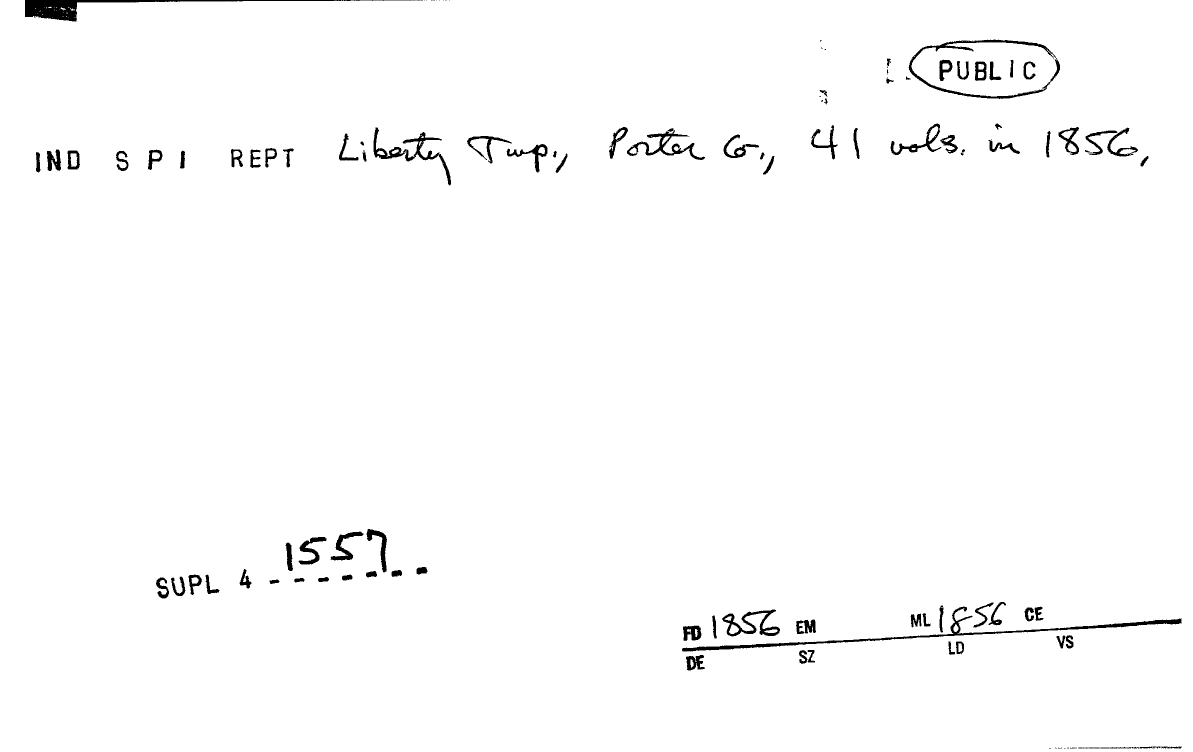 PUBLIC
IND S P I REPT Liberty Twp., Porter Co., 41 vols. in 1856,
SUPL 4 1557
FD 1856 EM ML 1856 CE
DE SZ LD VS